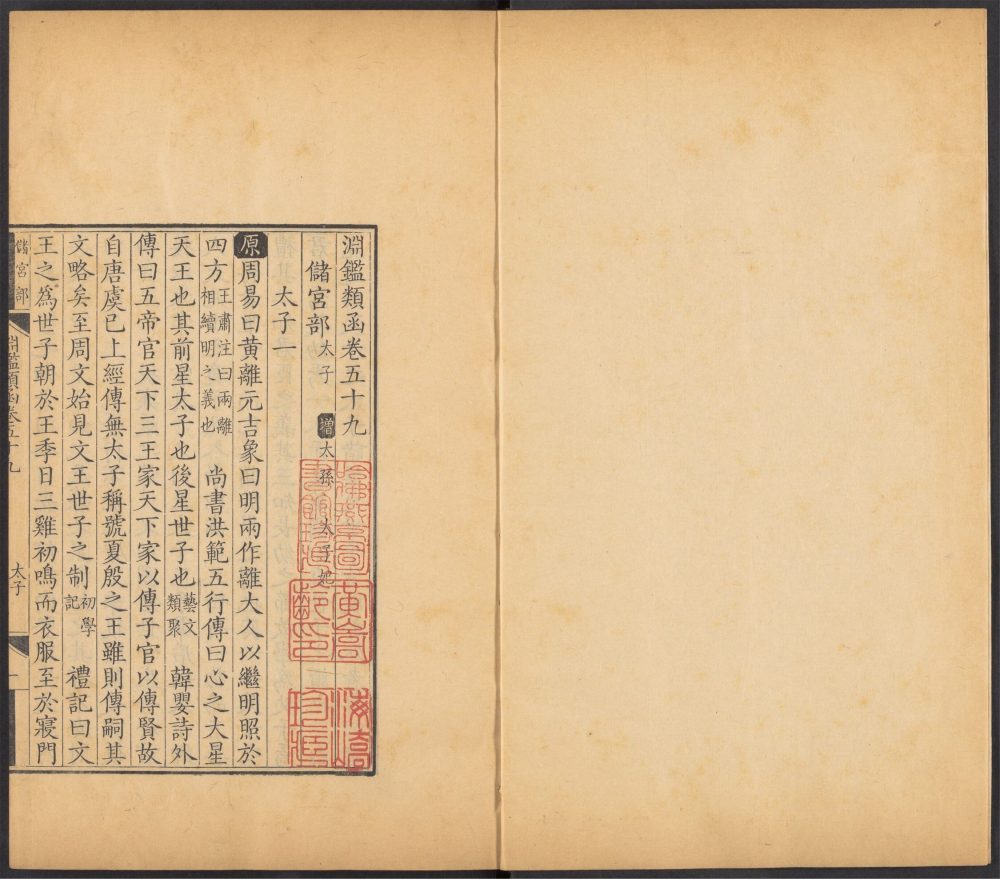 淵鑑類函卷五十九
儲宮部 太子 增 太孫 太子妃
太子一
原周易曰黄離元吉象曰明兩作離大人以繼明照於
四方王肅注曰兩離相續明之義也 尚書洪範五行傳曰心之大星
天王也其前星太子也後星世子也藝文類聚 韓嬰詩外
傳曰五帝官天下三王家天下家以傳子官以傳賢故
自唐虞已上經傳無太子稱號夏殷之王雖則傳嗣其
文略矣至周文始見文王世子之制初學記 禮記曰文
王之為世子朝於王季日三雞初鳴而衣服至於寢門
儲宮部
淵鑑類函卷五十九
太子
一
哈佛
黃齡
珍藏